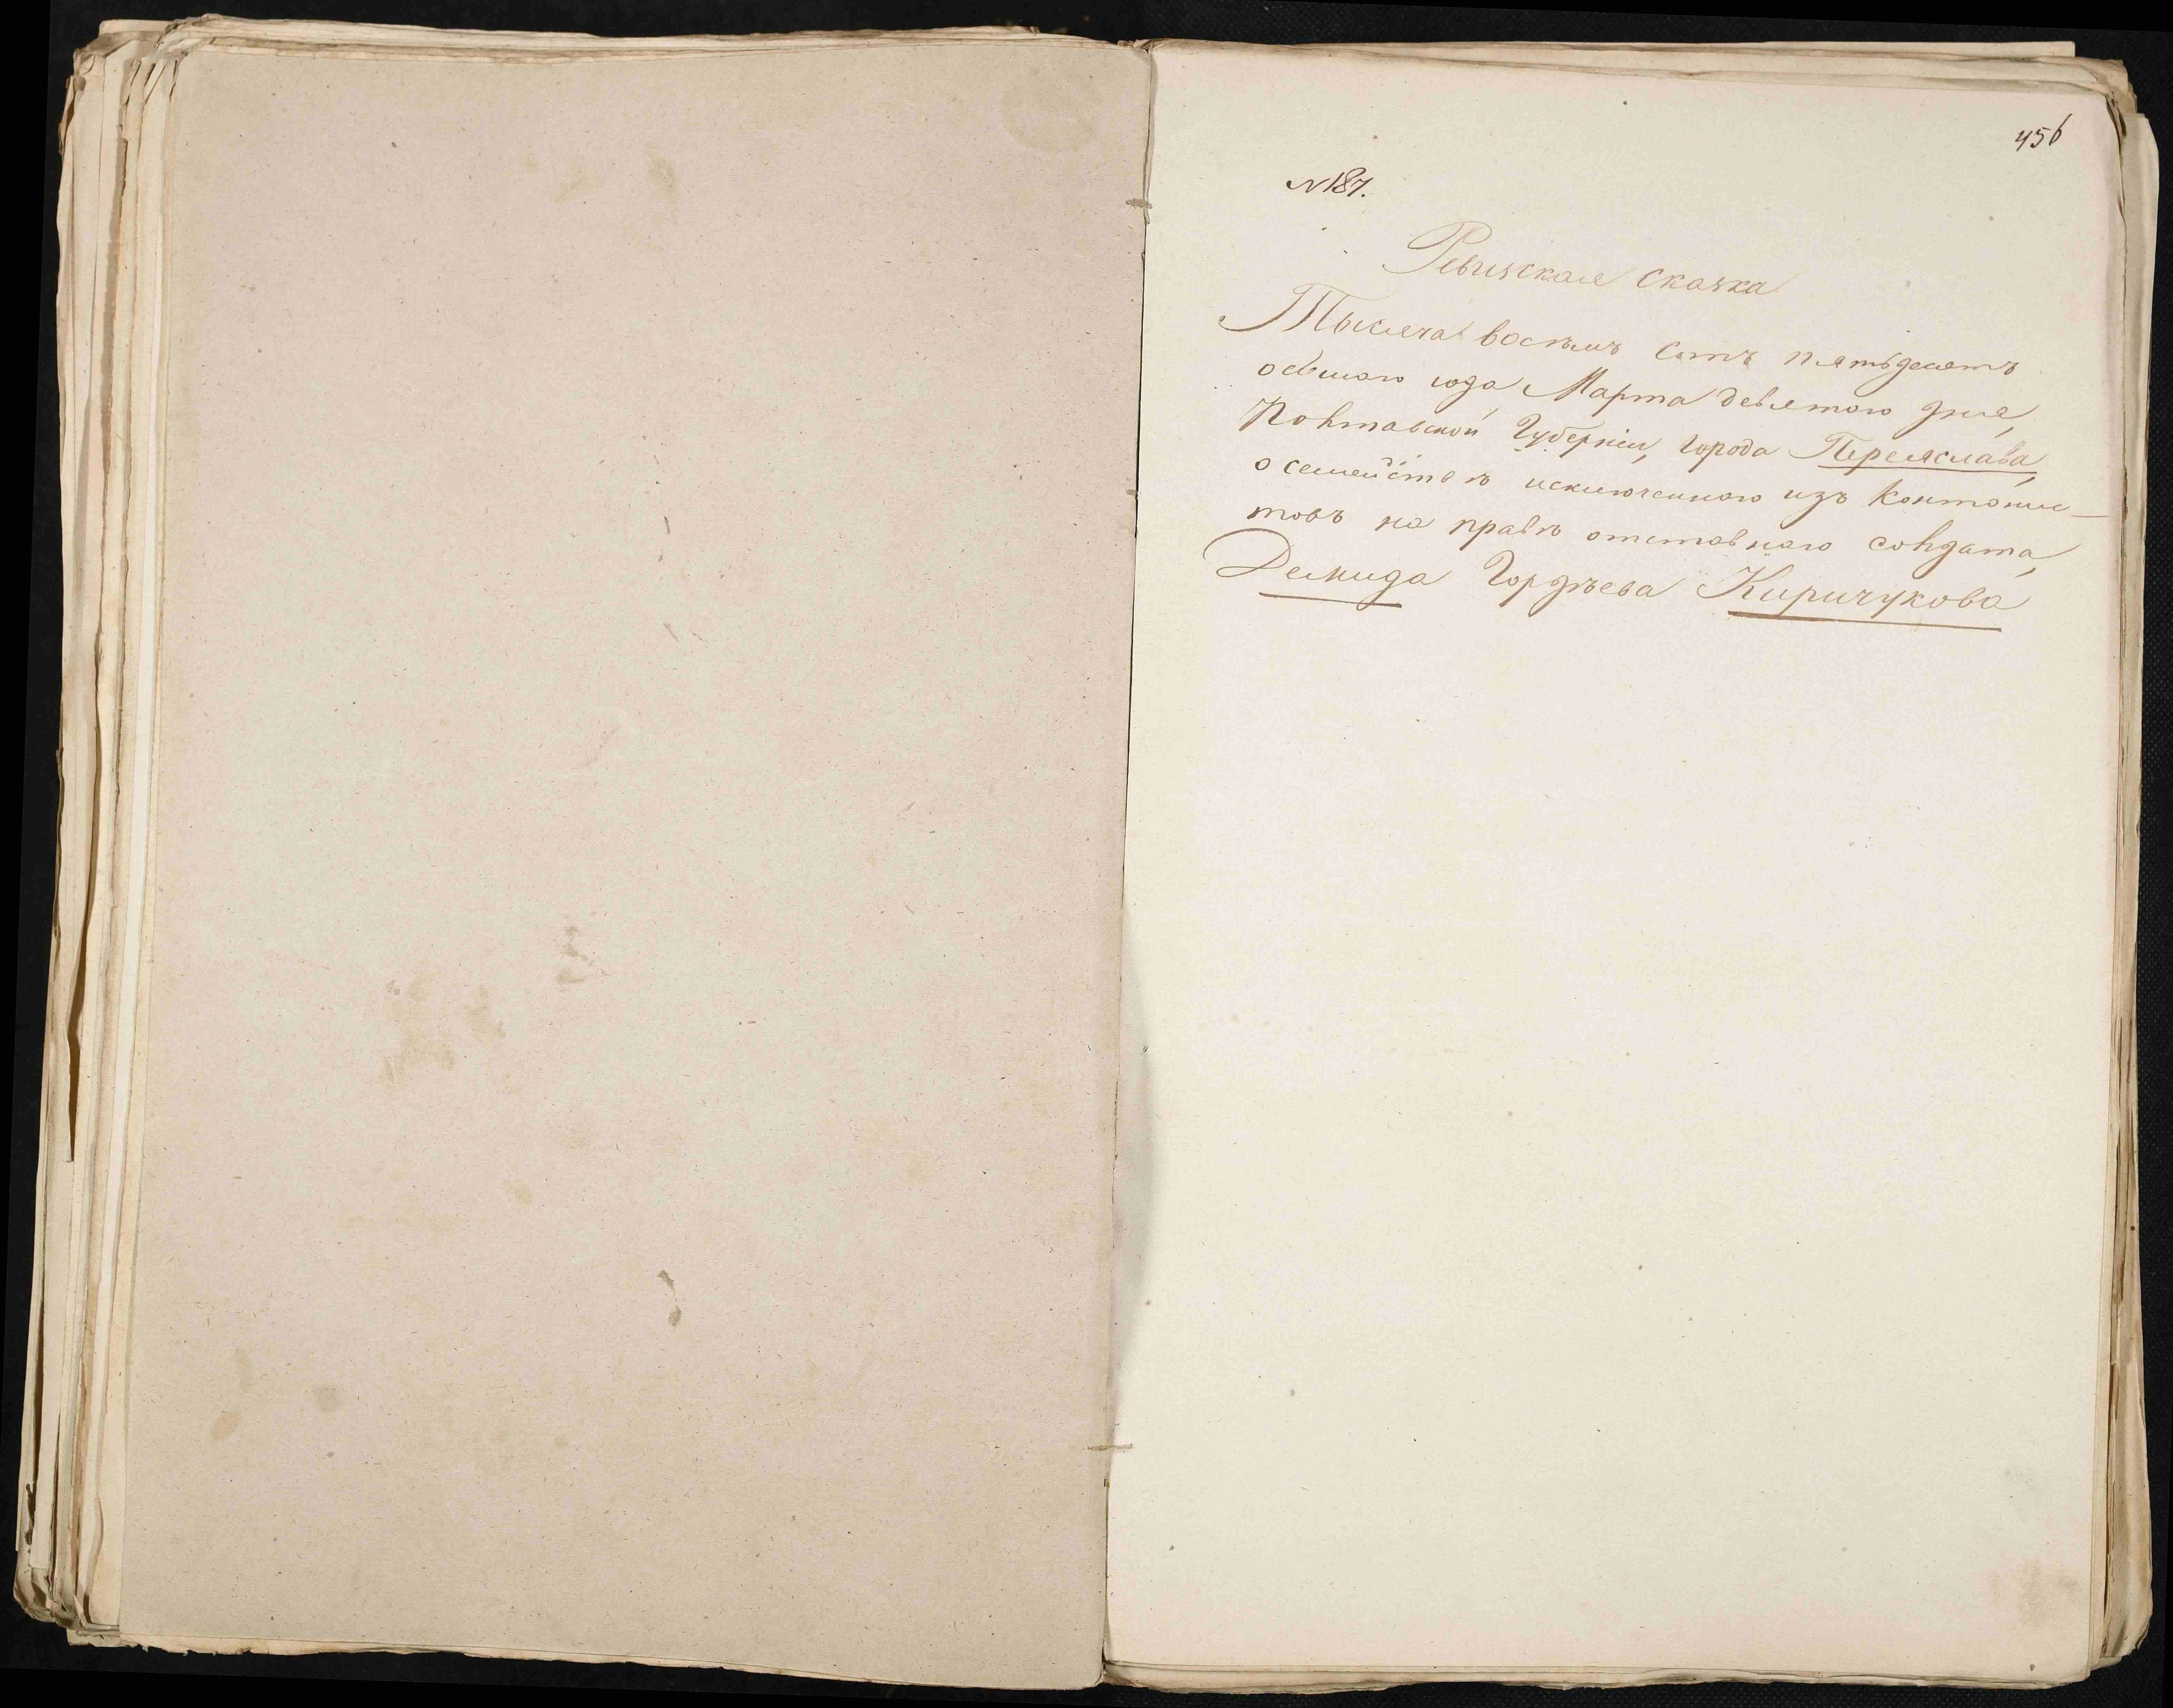 456
№ 187.
Ревизская сказка
Тысяча восемь сотъ пятьдесятъ
осьмаго года Марта девятаго дня,
Полтавской Губерніи, города Переяслава,
о семействѣ исключеннаго изъ кантонис-
товъ на правѣ отставнаго солдата,
Демида Гордѣева Киричукова